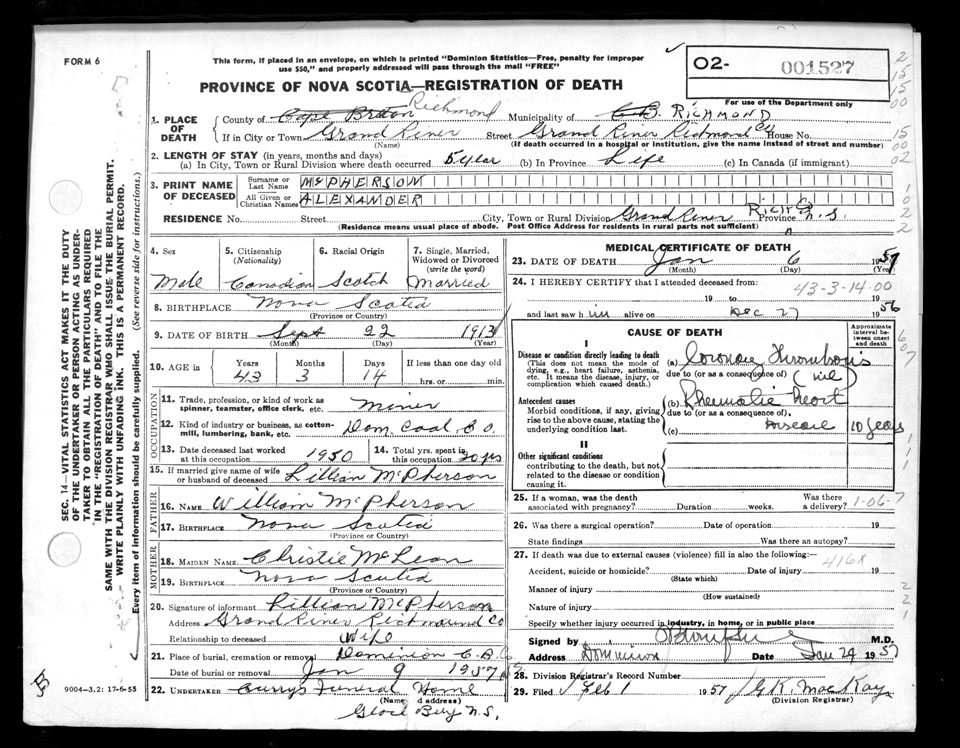 FORM 6
This form, if placed in an envelope, on which is printed "Dominion Statistics—Free, penalty for improper
use $50," and properly addressed will pass through the mail "FREE"
PROVINCE OF NOVA SCOTIA—REGISTRATION OF DEATH
O2- 001527
For use of the Department only
1. PLACE OF DEATH
County of Cape Breton Richmond Municipality of C.B. RICHMOND
If in City or Town Grand River Street Grand River Richmond Co House No.
(Name) (If death occurred in a hospital or institution, give the name instead of street and number)
2. LENGTH OF STAY (in years, months and days)
(a) In City, Town or Rural Division where death occurred 5 year (b) In Province Life (c) In Canada (if immigrant)
3. PRINT NAME OF DECEASED
Surname or Last Name McPHERSON
All Given or Christian Names ALEXANDER
RESIDENCE No. Street City, Town or Rural Division Grand River Rich Co Province N.S.
(Residence means usual place of abode. Post Office Address for residents in rural parts not sufficient)
4. Sex 5. Citizenship (Nationality) 6. Racial Origin 7. Single, Married, Widowed or Divorced (write the word)
Male Canadian Scotch Married
8. BIRTHPLACE Nova Scotia
(Province or Country)
9. DATE OF BIRTH Sept 22 1913
(Month) (Day) (Year)
10. AGE in Years Months Days If less than one day old
43 3 14 hrs. or min.
OCCUPATION
11. Trade, profession, or kind of work as
spinner, teamster, office clerk, etc. Miner
12. Kind of industry or business, as cotton-
mill, lumbering, bank, etc. Dom. Coal Co.
13. Date deceased last worked
at this occupation 1950
14. Total yrs. spent in
this occupation 20 yrs
15. If married give name of wife
or husband of deceased Lillian McPherson
FATHER
16. NAME William McPherson
17. BIRTHPLACE Nova Scotia
(Province or Country)
MOTHER
18. MAIDEN NAME Christie McLean
19. BIRTHPLACE Nova Scotia
(Province or Country)
20. Signature of informant Lillian McPherson
Address Grand River Richmound Co
Relationship to deceased Wife
21. Place of burial, cremation or removal Dominion C.B.
Date of burial or removal Jan 9 1957
22. UNDERTAKER Curry's Funeral Home
(Name and address)
Glace Bay N.S.
MEDICAL CERTIFICATE OF DEATH
23. DATE OF DEATH Jan 6 1957
(Month) (Day) (Year)
24. I HEREBY CERTIFY that I attended deceased from: 43-3-14-00
19 to 19
and last saw him alive on Dec 27 1956
CAUSE OF DEATH
Approximate interval between onset and death
I
Disease or condition directly leading to death
(This does not mean the mode of
dying, e.g., heart failure, asthenia,
etc. It means the disease, injury, or
complication which caused death.)
(a) Coronary Thrombosis
due to (or as a consequence of)
Antecedent causes
Morbid conditions, if any, giving
rise to the above cause, stating the
underlying condition last.
(b) Rheumatic Heart
due to (or as a consequence of)
(c) Disease 10 years
II
Other significant conditions
contributing to the death, but not
related to the disease or condition
causing it.
25. If a woman, was the death
associated with pregnancy? Duration weeks. Was there a delivery? 1-06-7
26. Was there a surgical operation? Date of operation 19
State findings Was there an autopsy?
27. If death was due to external causes (violence) fill in also the following:— 416X
Accident, suicide or homicide? Date of injury 19
(State which)
Manner of injury
(How sustained)
Nature of injury
Specify whether injury occurred in industry, in home, or in public place
Signed by M.D.
Address Dominion Date Jan 29 1957
28. Division Registrar's Record Number
29. Filed Feb 1 1957 G.K. MacKay
(Division Registrar)
9004-3.2: 17-6-55
SEC. 14—VITAL STATISTICS ACT MAKES IT THE DUTY
OF THE UNDERTAKER OR PERSON ACTING AS UNDER-
TAKER TO OBTAIN ALL THE PARTICULARS REQUIRED
IN THE "REGISTRATION OF DEATH" AND TO FILE THE
SAME WITH THE DIVISION REGISTRAR WHO SHALL ISSUE THE BURIAL PERMIT.
WRITE PLAINLY WITH UNFADING INK. THIS IS A PERMANENT RECORD.
Every item of information should be carefully supplied. (See reverse side for instructions.)